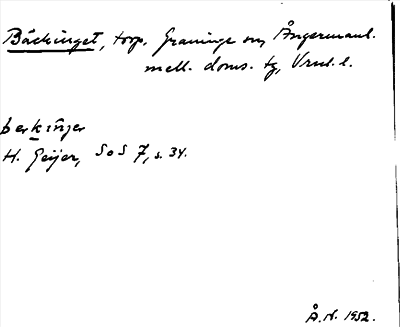 Bäckinget, torp. Graninge sn, Ångermanl.
mell. doms. tg, Vrnl. l.
berkiŋer
H. Geijer, SoS 7, s. 34.
Å.N. 1952.